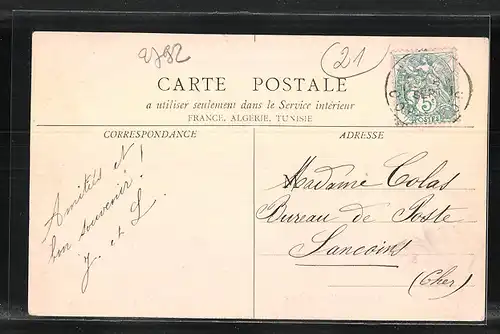 2792
(21)
CARTE POSTALE
a utiliser seulement dans le Service intérieur
FRANCE, ALGERIE, TUNISIE
CORRESPONDANCE
ADRESSE
Amitiés et
bon souvenir!
J. et L.
Madame Colas
Bureau de Poste
Sancoins
(Cher)
5
POSTES